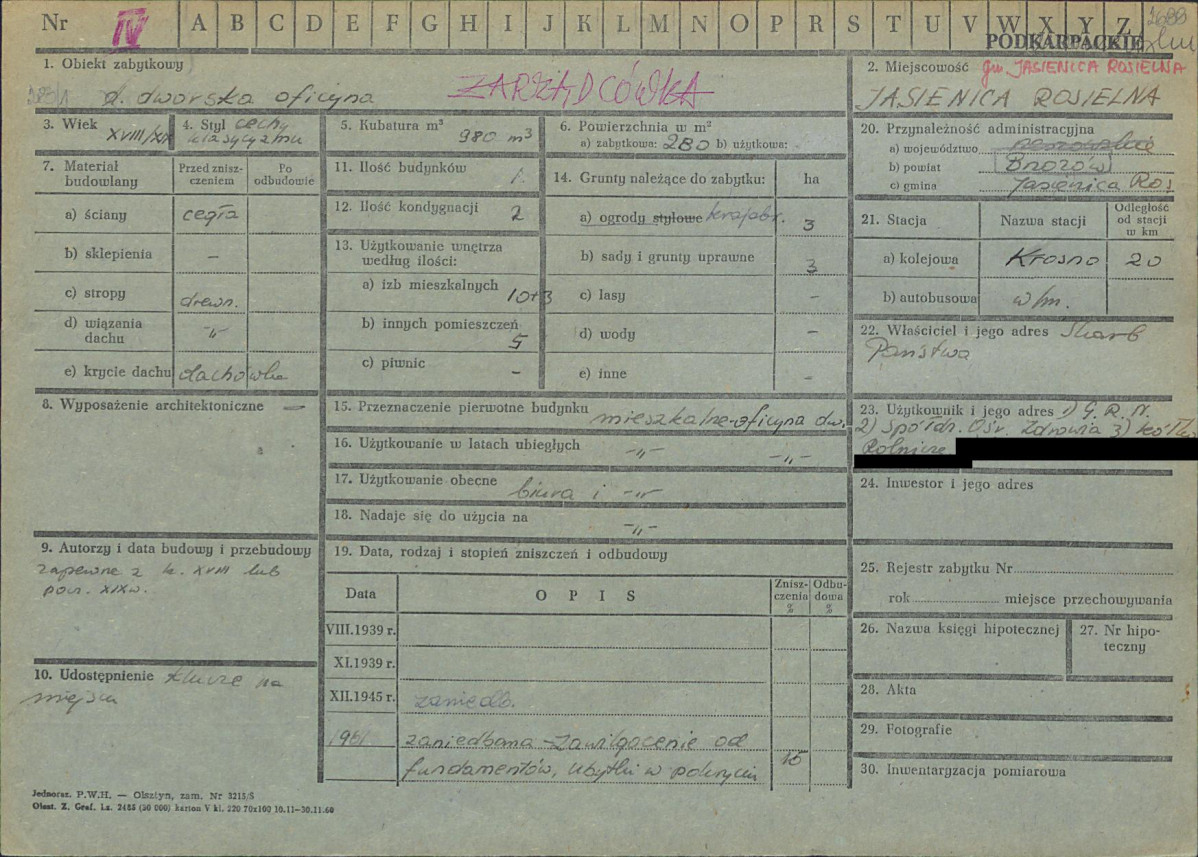 Nr IV A B C D E F G H I J K L M N O P R S T U V W X Y Z
PODKARPACKIE
1. Obiekt zabytkowy
d. dworska oficyna ZARZĄDCÓWKA
2. Miejscowość gm. JASIENICA ROSIELNA
JASIENICA ROSIELNA
3. Wiek XVIII/XIX
4. Styl cechy klasycyzmu
5. Kubatura m³ 980 m³
6. Powierzchnia w m²
a) zabytkowa: 280 b) użytkowa: -
7. Materiał budowlany
Przed zniszczeniem
Po odbudowie
a) ściany cegła
b) sklepienia –
c) stropy drewn.
d) wiązania dachu –„–
e) krycie dachu dachówka
8. Wyposażenie architektoniczne —
9. Autorzy i data budowy i przebudowy
zapewne z k. XVIII lub
pocz. XIXw.
10. Udostępnienie klucze na
miejscu
11. Ilość budynków 1
12. Ilość kondygnacji 2
13. Użytkowanie wnętrza
według ilości:
a) izb mieszkalnych 10+3
b) innych pomieszczeń 5
c) piwnic –
14. Grunty należące do zabytku: ha
a) ogrody stylowe krajobr. 3
b) sady i grunty uprawne 3
c) lasy –
d) wody –
e) inne –
15. Przeznaczenie pierwotne budynku mieszkalne-oficyna dw.
16. Użytkowanie w latach ubiegłych –„– –„–
17. Użytkowanie obecne biura i –„–
18. Nadaje się do użycia na –„–
19. Data, rodzaj i stopień zniszczeń i odbudowy
Data OPIS Zniszczenia % Odbudowa %
VIII.1939 r.
XI.1939 r.
XII.1945 r. zaniedb.
1961 zaniedbana – zawilgocenie od
fundamentów, ubytki w pokryciu 10
20. Przynależność administracyjna
a) województwo rzeszowskie
b) powiat Brozów
c) gmina Jasienica Ros.
21. Stacja Nazwa stacji Odległość od stacji w km
a) kolejowa Krosno 20
b) autobusowa w/m.
22. Właściciel i jego adres Skarb
Państwa
23. Użytkownik i jego adres 1) G.R.N.
2) Spółdz. Ośr. Zdrowia 3) Kółko
Rolnicze
24. Inwestor i jego adres
25. Rejestr zabytku Nr
rok miejsce przechowywania
26. Nazwa księgi hipotecznej
27. Nr hipoteczny
28. Akta
29. Fotografie
30. Inwentaryzacja pomiarowa
Jednoraz. P.W.H. — Olsztyn, zam. Nr 3215/S
Olszt. Z. Graf. Lz. 2485 (30 000) karton V kl. 220 70x100 10.11—30.11.60